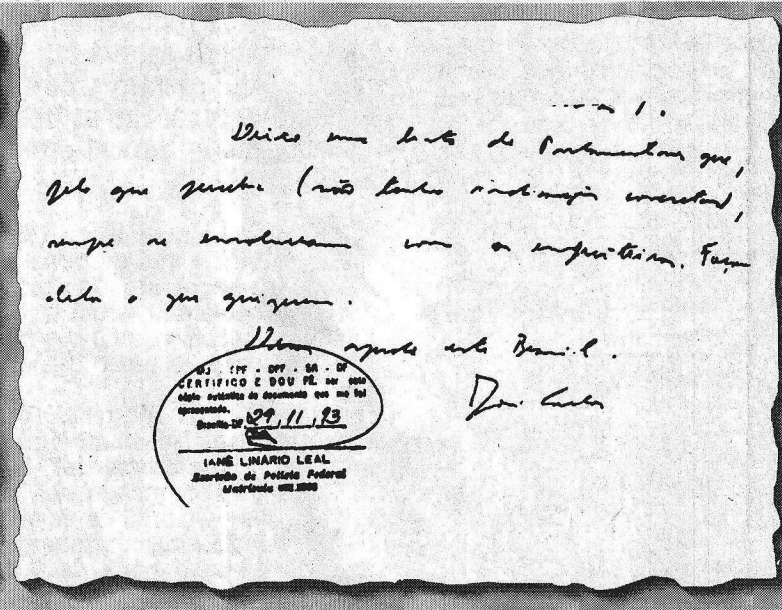 Deixo uma lista de Parlamentares que,
pelo que percebi (não tenho informações concretas),
sempre se envolveram com os empreiteiros. Façam
dela o que quiserem.
Vamos este Brasil.
José Carlos
MJ - DPF - SR - DF
CERTIFICO E DOU FÉ, ser esta
cópia autêntica do documento que me foi
apresentado.
Brasília-DF, 29, 11, 93
IANÊ LINÁRIO LEAL
Escrivão de Polícia Federal
Matrícula